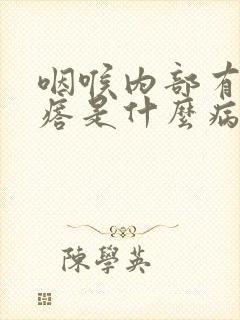 咽喉内部有
痞是什麼病
陳學英